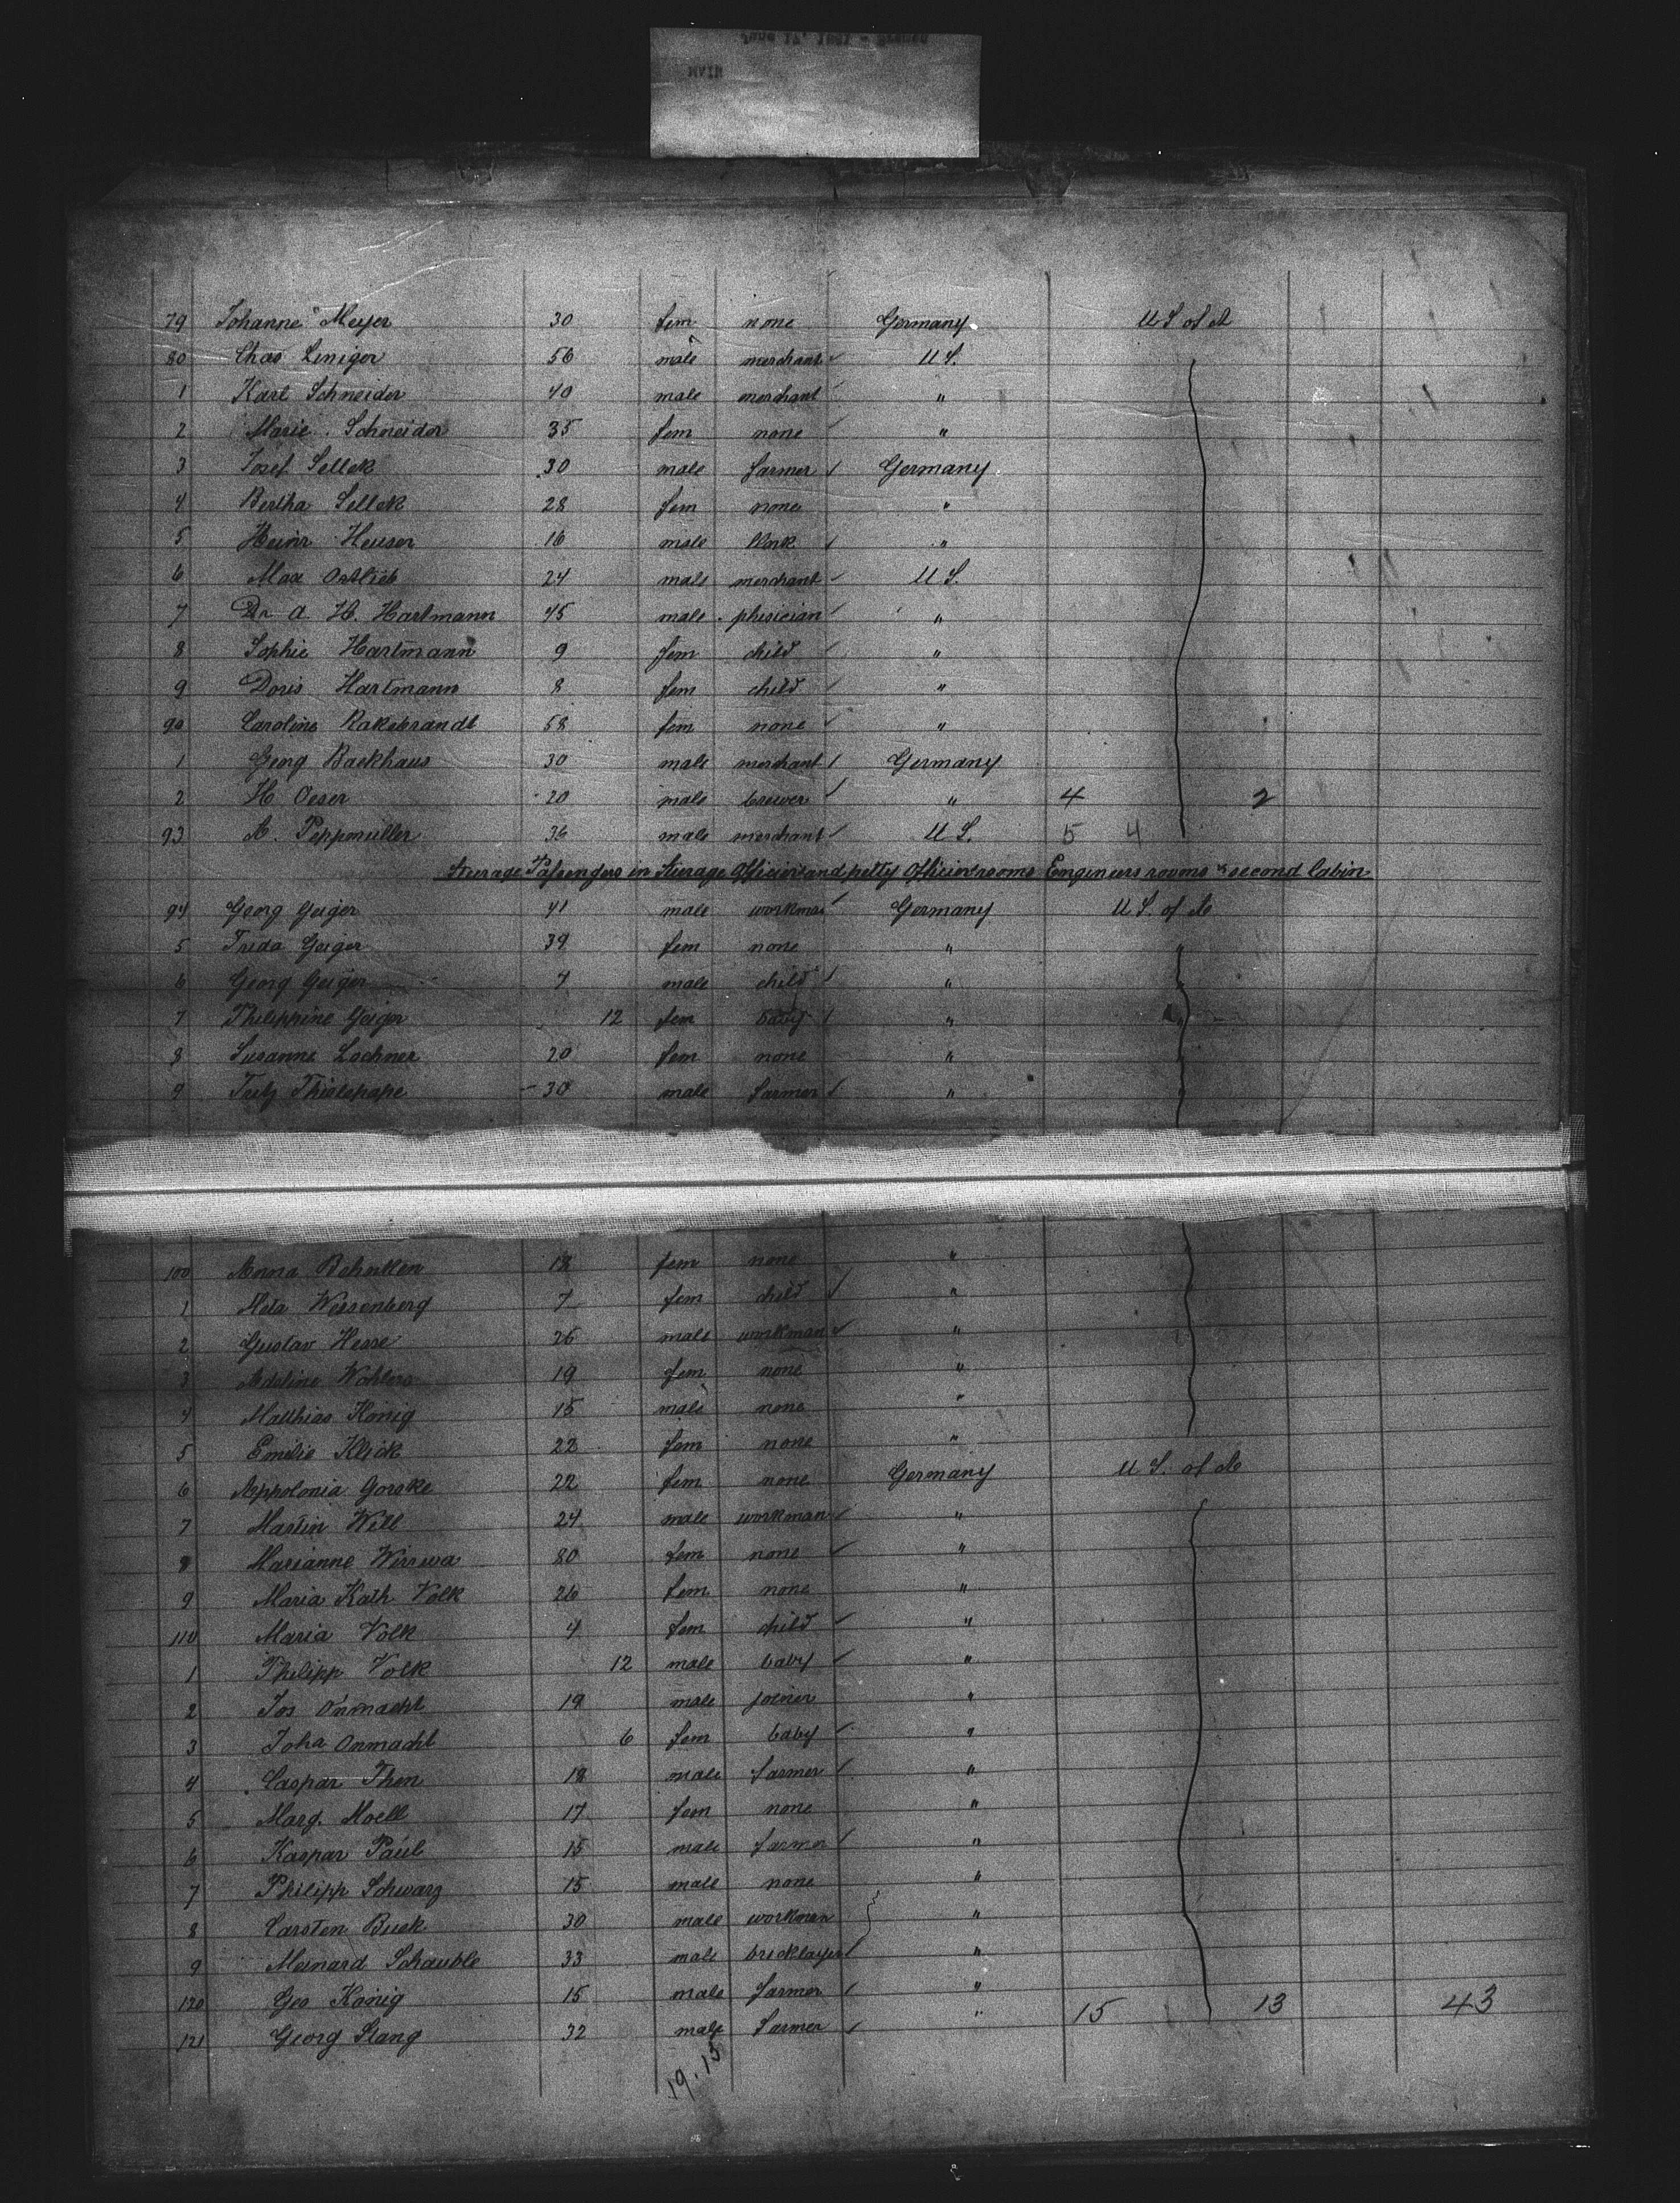 79 Johanne Meyer 30 fem none Germany U S of A
80 Chas Liniger 56 male merchant U S.
1 Karl Schneider 40 male merchant "
2 Marie Schneider 35 fem none "
3 Josef Sellek 30 male farmer Germany
4 Bertha Sellek 28 fem none "
5 Heinr Heuser 16 male Clerk "
6 Max Ostlieb 24 male merchant U S.
7 Dr A. H. Hartmann 45 male phisician "
8 Sophie Hartmann 9 fem child "
9 Doris Hartmann 8 fem child "
90 Caroline Rakebrandt 58 fem none "
1 Georg Backhaus 30 male merchant Germany
2 H Oeser 20 male brewer " 4 2
93 A. Peppmüller 36 male merchant U S. 5 4
Steerage Passengers in Steerage Officiers and petty Officier rooms Engineers rooms second Cabin
94 Georg Geiger 41 male workman Germany U S. of A
5 Frida Geiger 39 fem none " "
6 Georg Geiger 7 male child "
7 Philippine Geiger 12 fem baby "
8 Susanne Lochner 20 fem none "
9 Fritz Thielepape 30 male farmer "
100 Anna 18 fem none "
1 Meta Wessenberg 7 fem child "
2 Gustav Hesse 26 male workman "
3 Adeline Wohlers 19 fem none "
4 Matthias König 15 male none "
5 Emilie Klick 22 fem none "
6 Appolonia Gorske 22 fem none Germany U S. of A
7 Martin Will 24 male workman "
8 Marianne Wirswa 80 fem none "
9 Maria Kath Volk 26 fem none "
110 Maria Volk 4 fem child "
1 Philipp Volk 12 male baby "
2 Jos Onmacht 19 male joiner "
3 Joha Onmacht 6 fem baby "
4 Caspar Then 18 male farmer "
5 Marg. Moell 17 fem none "
6 Kaspar Paul 15 male farmer "
7 Philipp Schwarz 15 male none "
8 Carsten Buck 30 male workman "
9 Meinard Schäuble 33 male bricklayer "
120 Geo König 15 male farmer " 15 13 43
121 Georg Stang 32 male farmer
19. 15